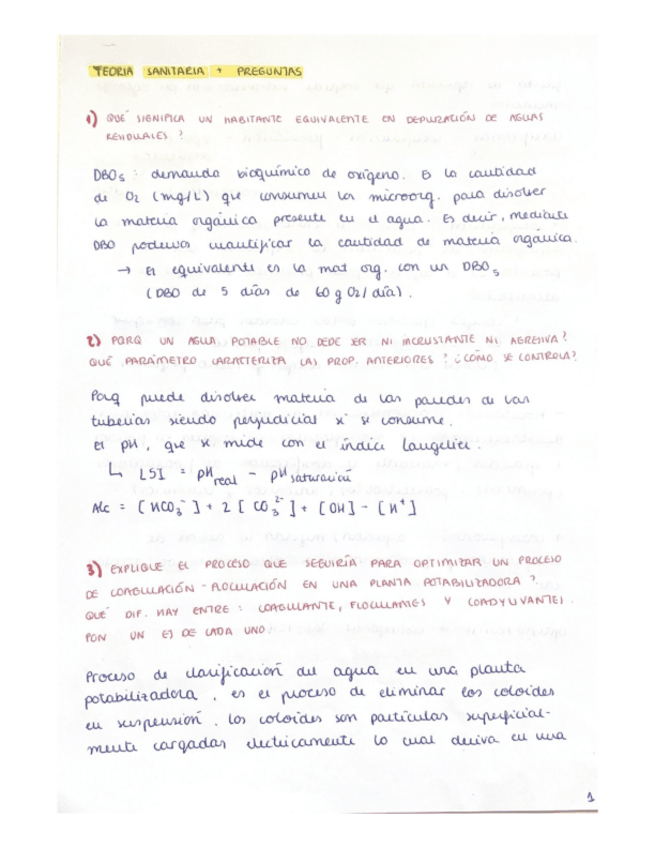 TEORIA SANITARIA + PREGUNTAS
1) QUÉ SIGNIFICA UN HABITANTE EQUIVALENTE EN DEPURACIÓN DE AGUAS
RESIDUALES ?
DBO5 : demanda bioquímica de oxígeno. Es la cantidad
de O2 (mg/L) que consumen los microorg. para disolver
la materia orgánica presente en el agua. Es decir, mediante
DBO podemos cuantificar la cantidad de materia orgánica.
→ El equivalente es la mat org. con un DBO5
(DBO de 5 días de 60 g O2/día).
2) PORQ UN AGUA POTABLE NO DEBE SER NI INCRUSTANTE NI AGRESIVA ?
QUÉ PARÁMETRO CARACTERIZA LAS PROP. ANTERIORES ? ¿CÓMO SE CONTROLA?
Porq puede disolver materia de las paredes de las
tuberías siendo perjudicial si se consume.
El pH, que se mide con el índice Langelier.
↳ LSI = pH real - pH saturación
Alc = [HCO3-] + 2 [CO3 2-] + [OH] - [H+]
3) EXPLIQUE EL PROCESO QUE SEGUIRÍA PARA OPTIMIZAR UN PROCESO
DE COAGULACIÓN - FLOCULACIÓN EN UNA PLANTA POTABILIZADORA ?.
QUÉ DIF. HAY ENTRE : COAGULANTE, FLOCULANTES Y COADYUVANTES.
PON UN EJ DE CADA UNO.
Proceso de clarificación del agua en una planta
potabilizadora, es el proceso de eliminar los coloides
en suspensión. Los coloides son partículas superficial-
mente cargadas eléctricamente lo cual deriva en una
1